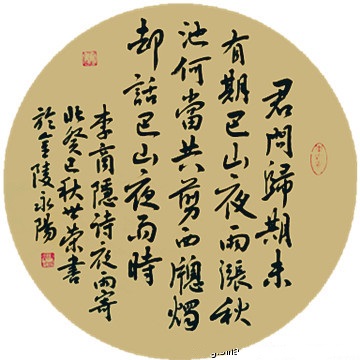 君问歸期未
有期巴山夜雨漲秋
池何當共剪西窗燭
却話巴山夜雨時
李商隱詩夜雨寄
北癸巳秋世荣書
於金陵永陽